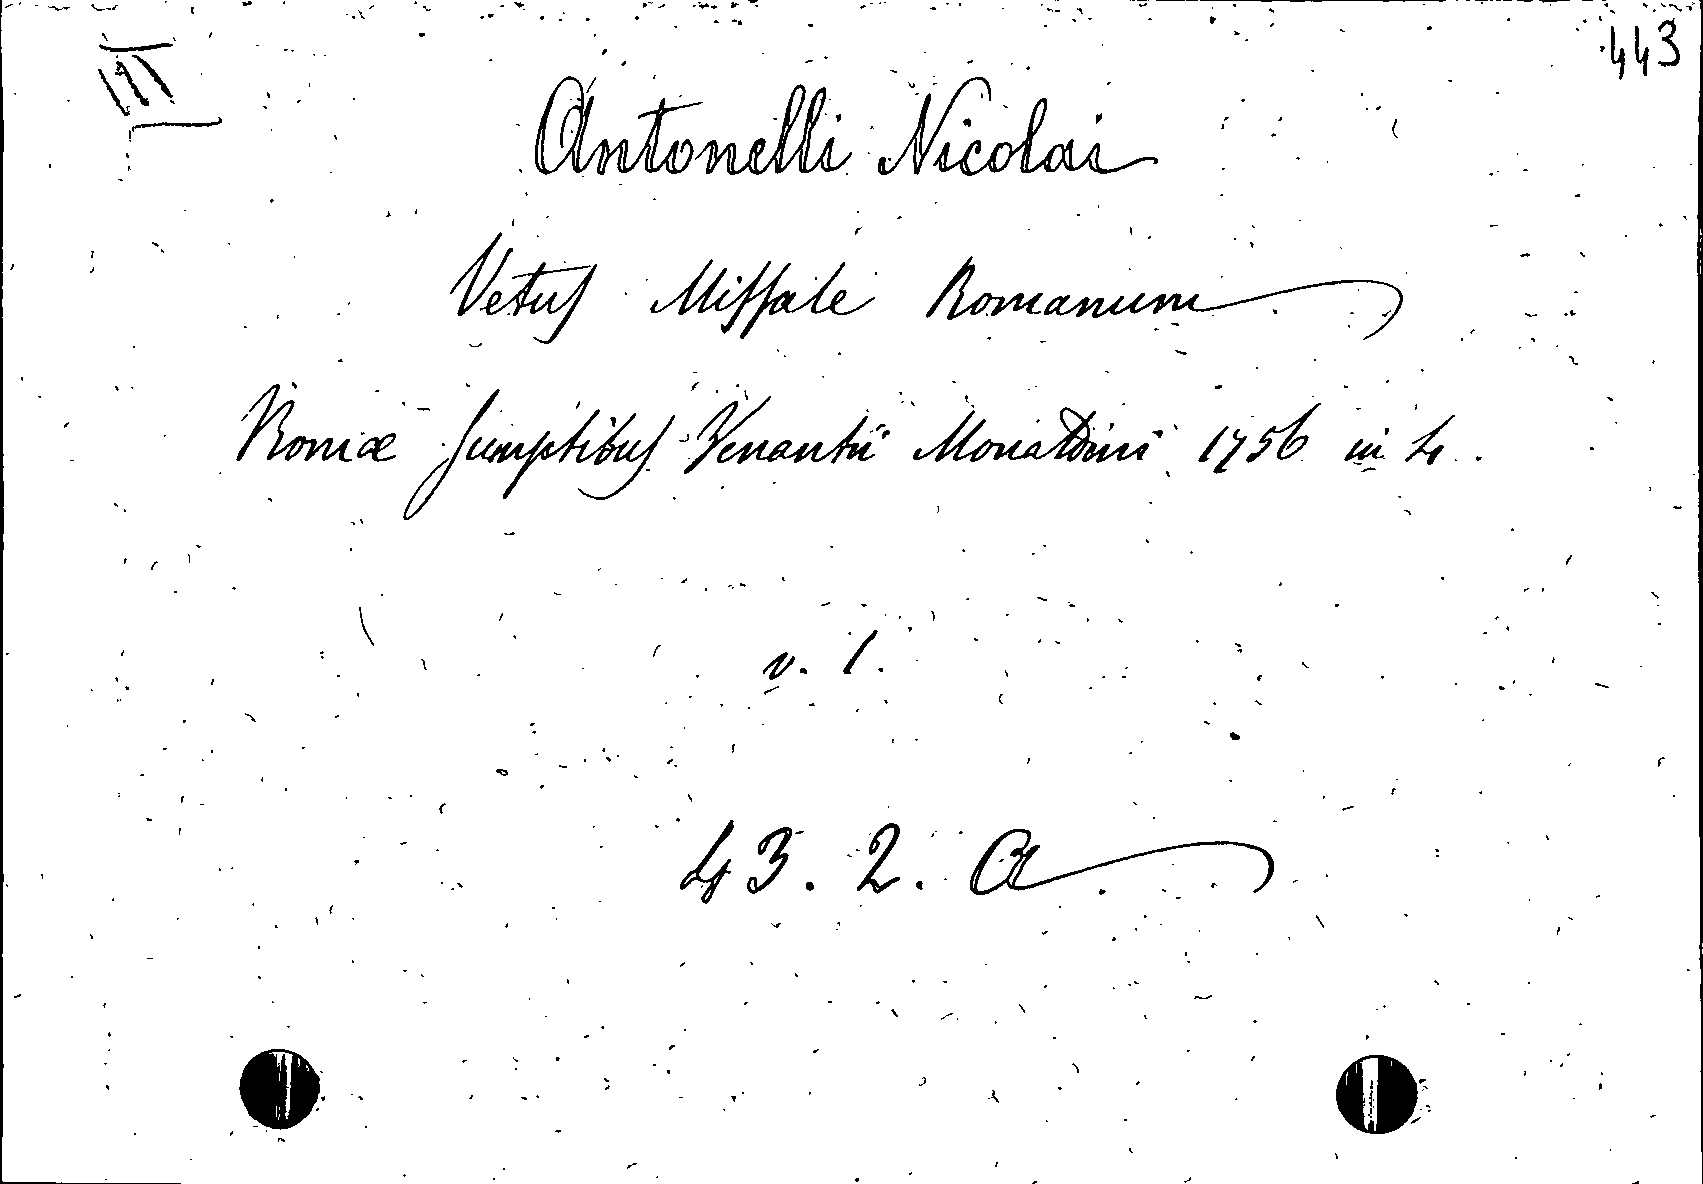 III
443
Antonelli Nicolai
Vetus Missale Romanum
Romæ sumptibus Venantii Monaldini 1756 in 4.
v. 1.
43. 2. A